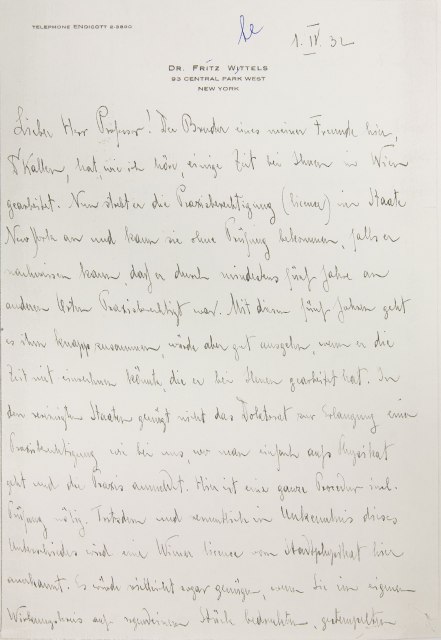 TELEPHONE ENDICOTT 2-3800
1. IV. 32
DR. FRITZ WITTELS
93 CENTRAL PARK WEST
NEW YORK
Lieber Herr Professor! Der Bruder eines meiner Freunde hier,
Kallen, hat, wie ich höre, einige Zeit bei Ihnen in Wien
gearbeitet. Nun strebt er die Praxisberechtigung (licence) im Staate
New York an und kann sie ohne Prüfung bekommen, falls er
nachweisen kann, daß er durch mindestens fünf Jahre an
anderen Orten Praxisberechtigt war. Mit diesen fünf Jahren geht
es ihm knapp zusammen, würde aber gut ausgehen, wenn er die
Zeit mit einrechnen könnte, die er bei Ihnen gearbeitet hat. In
den vereinigten Staaten genügt nicht das Doktorat zur Erlangung einer
Praxisberechtigung wie bei uns, wo man einfach aufs Physikat
geht und die Praxis anmeldet. Hier ist eine ganze Prozedur inkl.
Prüfung nötig. Trotzdem und vermutlich in Unkenntnis dieses
Unterschiedes wird eine Wiener licence vom Stadtphysikat hier
anerkannt. Es würde vielleicht sogar genügen, wenn Sie im eigenen
Wirkungskreis auf irgendeinem Stück bedruckten, gestempelten